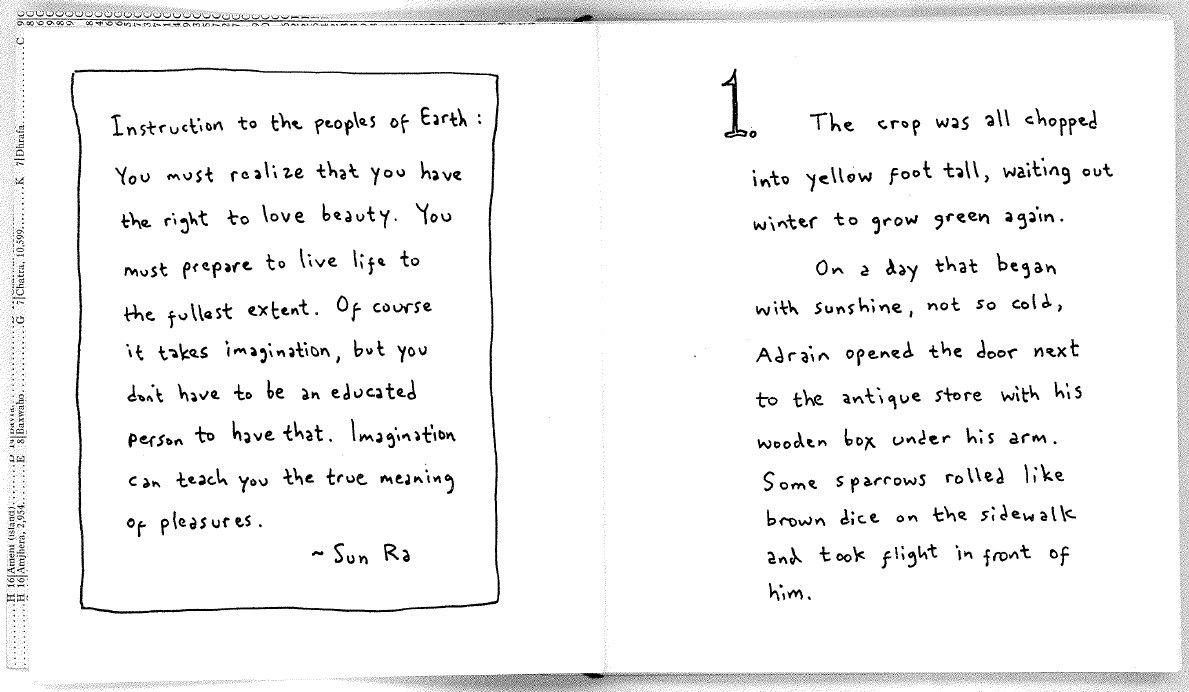 Instruction to the peoples of Earth:
You must realize that you have
the right to love beauty. You
must prepare to live life to
the fullest extent. Of course
it takes imagination, but you
don't have to be an educated
person to have that. Imagination
can teach you the true meaning
of pleasures.
~ Sun Ra
1. The crop was all chopped
into yellow foot tall, waiting out
winter to grow green again.
On a day that began
with sunshine, not so cold,
Adrain opened the door next
to the antique store with his
wooden box under his arm.
Some sparrows rolled like
brown dice on the sidewalk
and took flight in front of
him.
K 7|Dhrafa
G 7|Chatra, 10,599
E 8|Baxwaho
H 16|Ameni (island)
H 16|Amjhera, 2,954